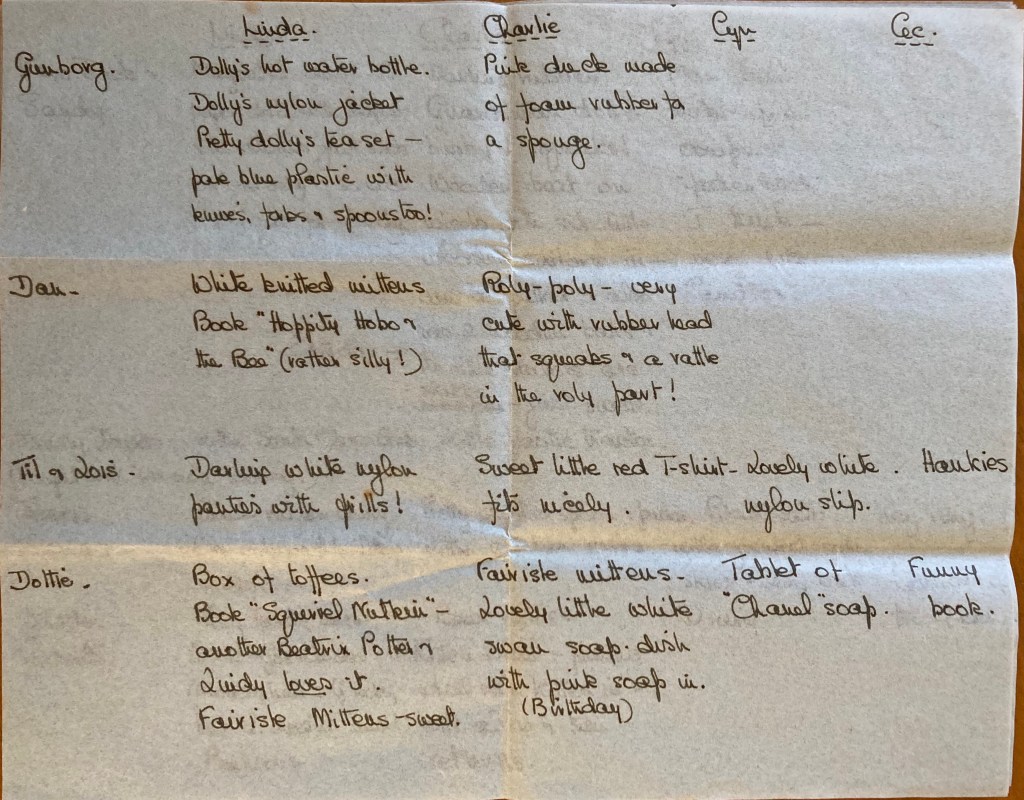 Linda. Charlie Cyn Cec.
Gunborg. Dolly's hot water bottle. Pink duck made
Dolly's nylon jacket of foam rubber fa
Pretty dolly's tea set — a sponge.
pale blue plastic with
knives, forks & spoons too!
Dan - White knitted mittens Roly-poly - very
Book "Hoppity Hobo & cute with rubber head
the Bee" (rather silly!) that squeaks & a rattle
in the roly part!
Til & Lois - Darling white nylon Sweet little red T-shirt - Lovely white . Hankies
panties with frills! fits nicely. nylon slip.
Dottie. Box of toffees. Fairisle mittens - Tablet of Funny
Book "Squirrel Nutkin" - Lovely little white "Chanel" soap. book.
another Beatrix Potter & swan soap-dish
Lindy loves it. with pink soap in.
Fairisle Mittens - sweet. (Birthday)